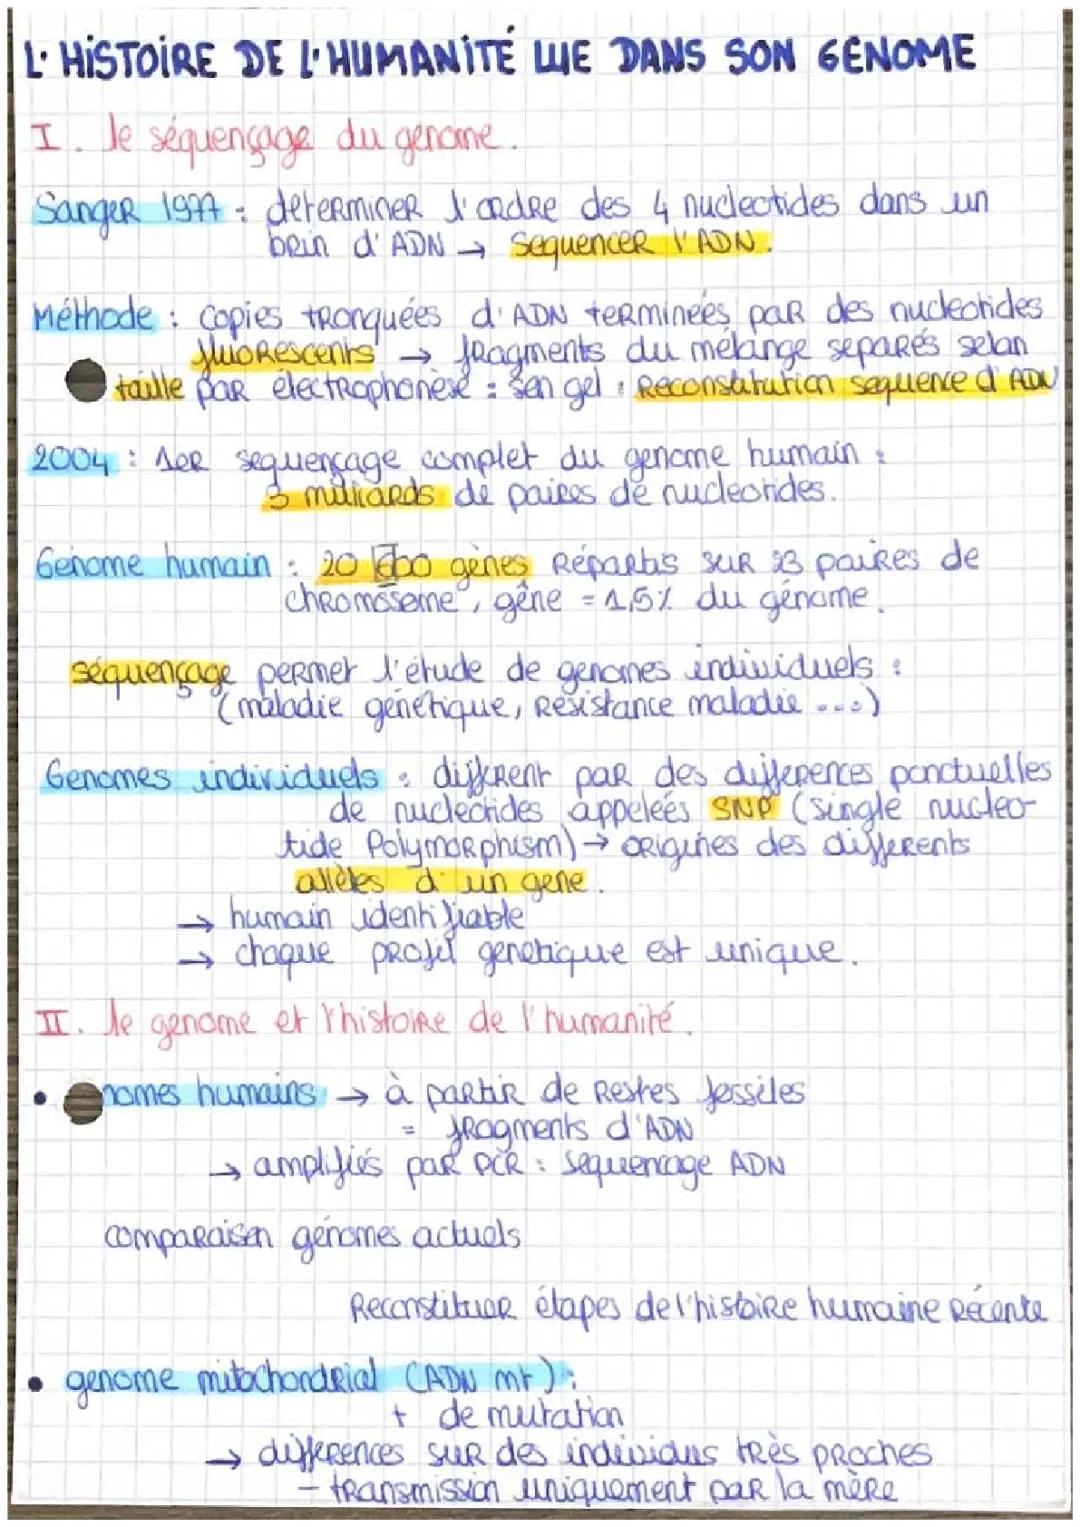 L'HISTOIRE DE L'HUMANITÉ LUE DANS SON GENOME
I. le séquençage du genome.
Sanger 1977 : determiner l'ordre des 4 nucleotides dans un
brin d'ADN → Sequencer l'ADN.
Méthode : copies tronquées d'ADN terminées par des nucleotides
fluorescents → fragments du mélange separés selon
taille par électrophorèse : gel : Reconstitution sequence d'ADN
2004 : 1er sequençage complet du genome humain :
3 milliards de paires de nucleotides.
Génome humain : 20 000 gènes Répartis sur 23 paires de
chromosome, gêne = 1,5% du génome.
séquençage permet l'étude de genomes individuels :
(maladie génétique, Resistance maladie ...)
Genomes individuels : différent par des differences ponctuelles
de nucleotides appeleés SNP (single nucleo-
tide Polymorphism) → origines des differents
allèles d'un gene.
→ humain identifiable
→ chaque profil genetique est unique.
II. le genome et l'histoire de l'humanité.
• nomes humains → à partir de Restes fossiles
= fragments d'ADN
→ amplifiés par PCR : sequencage ADN
comparaison génomes actuels
Reconstituer étapes de l'histoire humaine Récente
• genome mitochondrial (ADN mt) :
+ de mutation
→ differences sur des individus très proches
- transmission uniquement par la mère